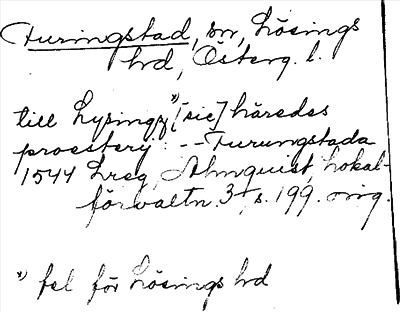 Furingstad, sn, Lösings
hrd, Österg. l.
till Lysingz *) [sic] häredes
proestery: -- Furungstada
1544 Lreg, Almquist, Lokal-
förvaltn. 3, s. 199. orig.
*) fel för Lösings hrd